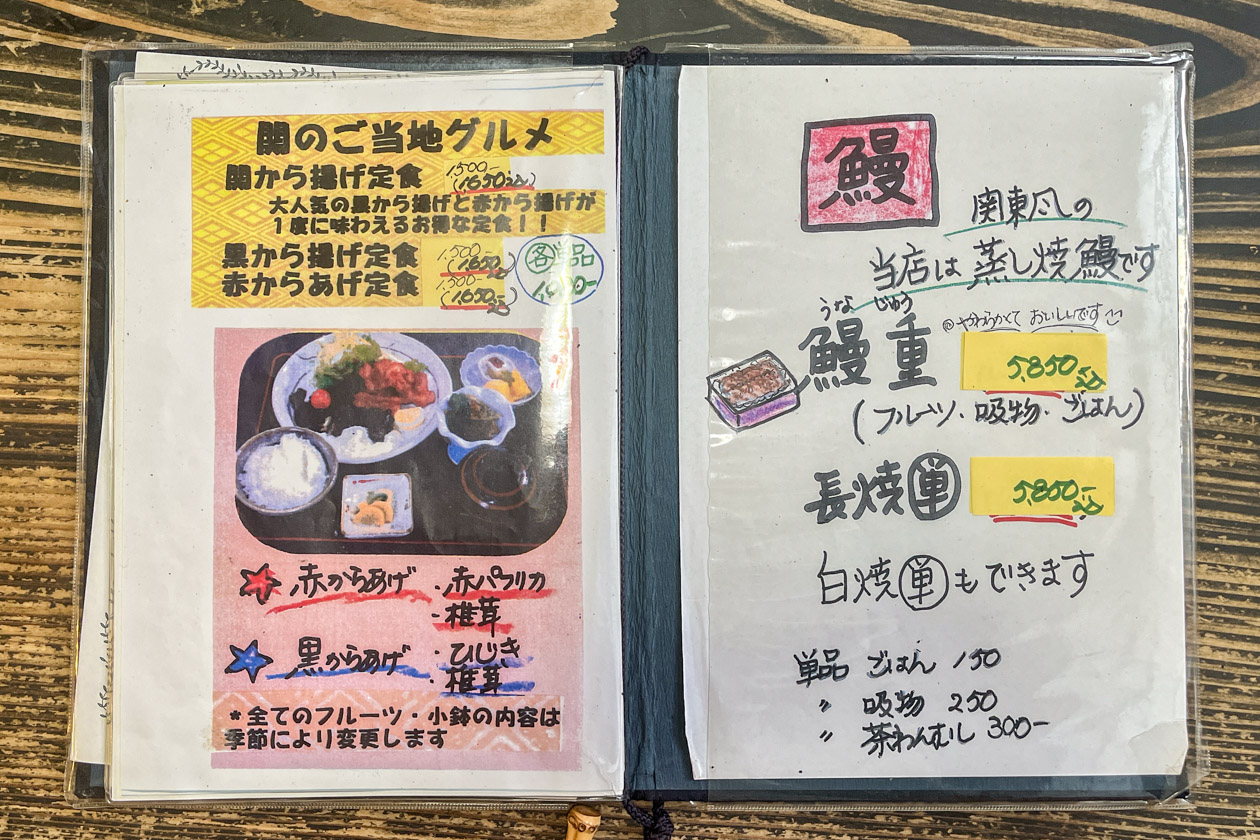 関のご当地グルメ
関から揚げ定食 1,500- (1,650込)
大人気の黒から揚げと赤から揚げが
1度に味わえるお得な定食!!
黒から揚げ定食 1,500- (1,650込)
赤からあげ定食 1,500- (1,650込)
各単品
赤からあげ ・赤パプリカ
・椎茸
黒からあげ ・ひじき
・椎茸
*全てのフルーツ・小鉢の内容は
季節により変更します
鰻
関東風の
当店は 蒸し焼鰻です
うな じゅう
◎やわらかくて おいしいです
鰻重 5,850込
(フルーツ・吸物・ごはん)
長焼 単 5,850-込
白焼 単 もできます
単品 ごはん 150
〃 吸物 250
〃 茶わんむし 300-